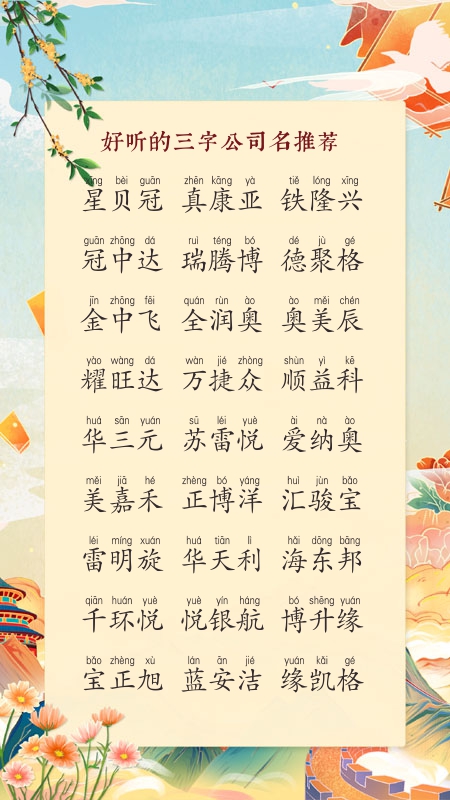 好听的三字公司名推荐
xīng bèi guān zhēn kāng yà tiě lóng xīng
星贝冠 真康亚 铁隆兴
guān zhōng dá ruì téng bó dé jù gé
冠中达 瑞腾博 德聚格
jīn zhōng fēi quán rùn ào ào měi chén
金中飞 全润奥 奥美辰
yào wàng dá wàn jié zhòng shùn yì kē
耀旺达 万捷众 顺益科
huá sān yuán sū léi yuè ài nà ào
华三元 苏雷悦 爱纳奥
měi jiā hé zhèng bó yáng huì jùn bǎo
美嘉禾 正博洋 汇骏宝
léi míng xuán huá tiān lì hǎi dōng bāng
雷明旋 华天利 海东邦
qiān huán yuè yuè yín háng bó shēng yuán
千环悦 悦银航 博升缘
bǎo zhèng xù lán ān jié yuán kǎi gé
宝正旭 蓝安洁 缘凯格